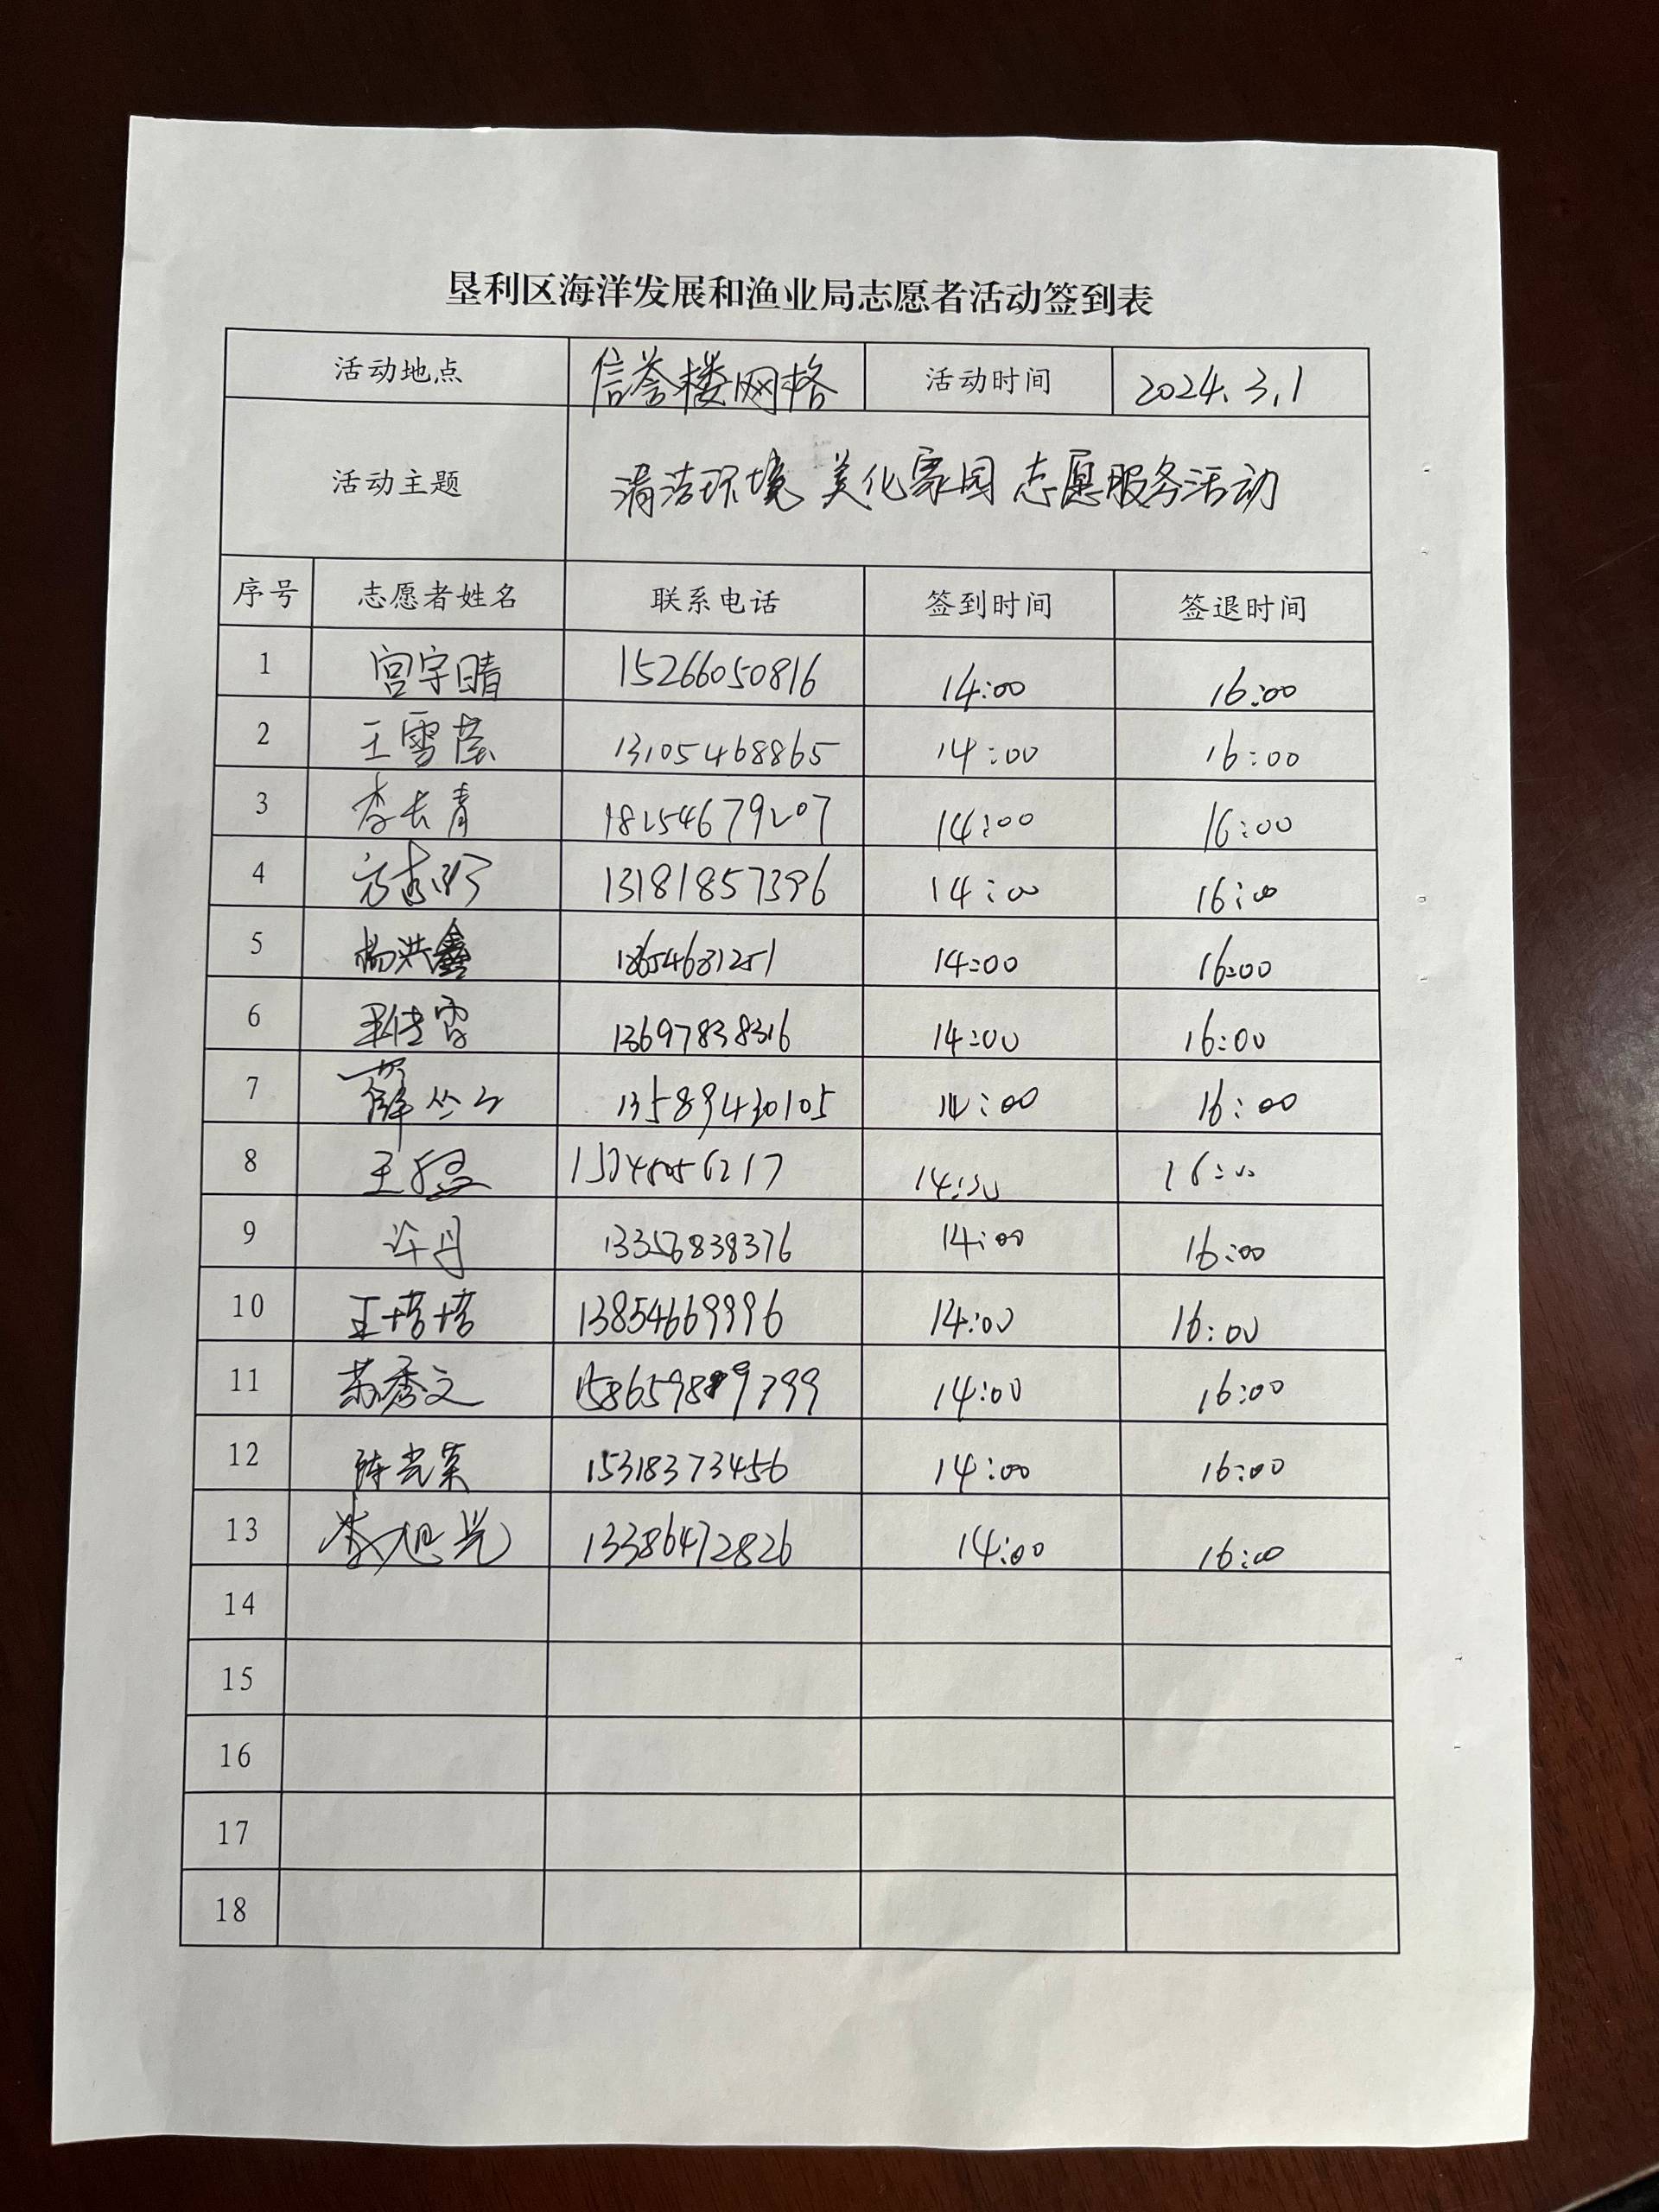 垦利区海洋发展和渔业局志愿者活动签到表
活动地点 信誉楼网格 活动时间 2024.3.1
活动主题 清洁环境 美化家园 志愿服务活动
序号 志愿者姓名 联系电话 签到时间 签退时间
1 宫宇晴 15266050816 14:00 16:00
2 王雪莹 13105468865 14:00 16:00
3 李长青 18254679207 14:00 16:00
4 13181857396 14:00 16:00
5 杨洪鑫 14:00 16:00
6 13697838316 14:00 16:00
7 薛丛丛 13589430105 14:00 16:00
8 王 14:00 16:00
9 许丹 14:00 16:00
10 王塔塔 13854669996 14:00 16:00
11 苏秀文 14:00 16:00
12 陈光英 15318373456 14:00 16:00
13 李旭光 13386472826 14:00 16:00
14
15
16
17
18